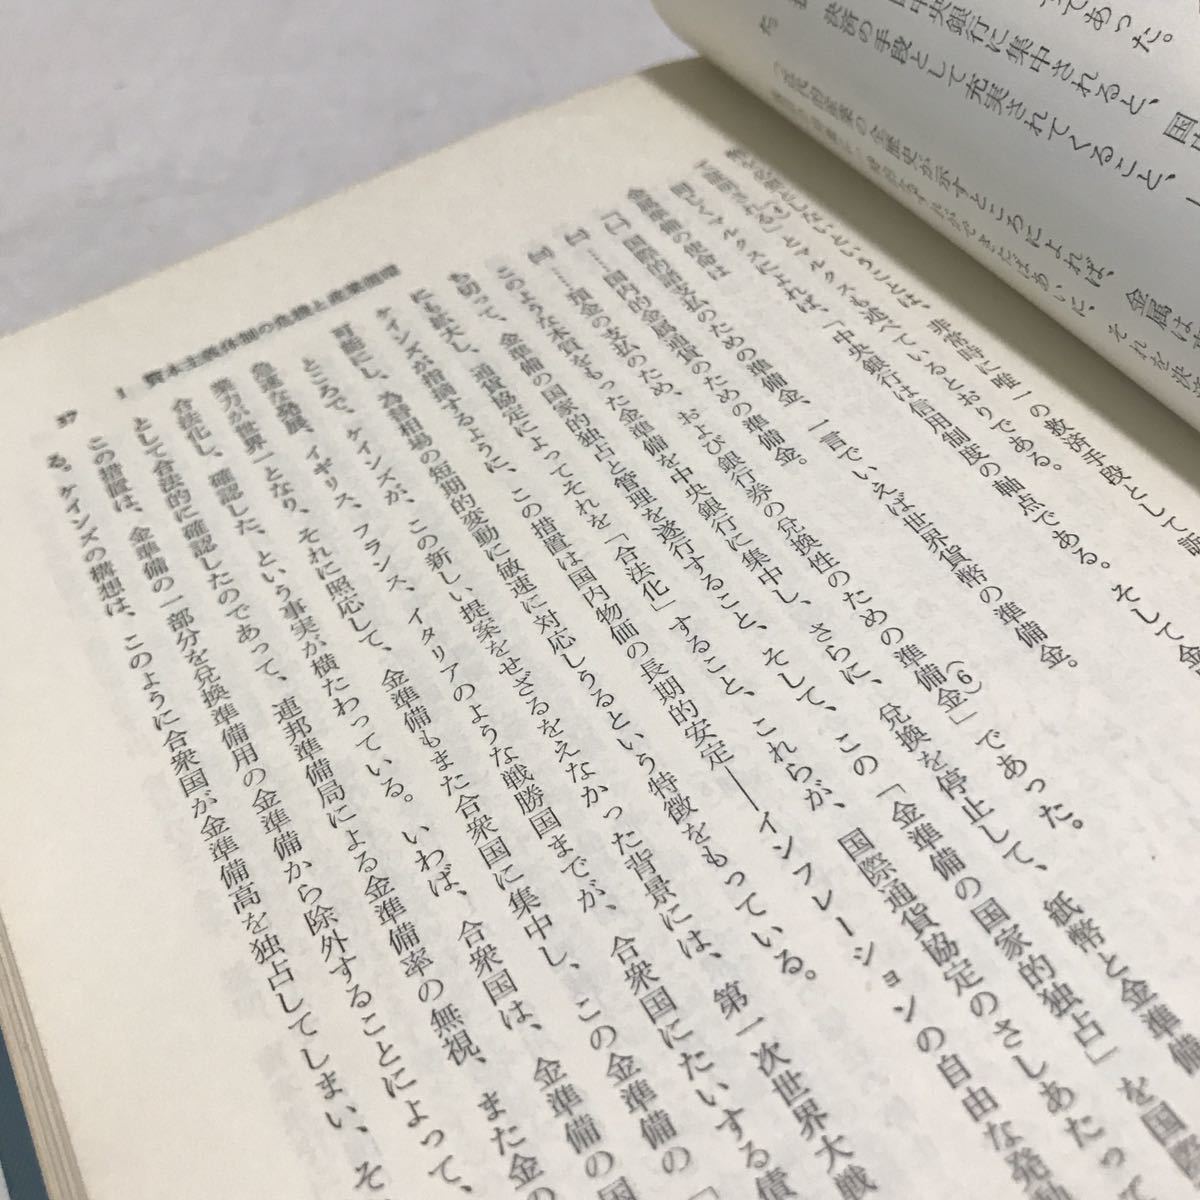 であった。
中央銀行に集中されると、国
決済の手段として充実されてくること、
金属は
非常時に唯一の救済手段として
とマルクスも述べているとおりである。そして金
マルクスによれば、「中央銀行は信用制度の軸点である。
金準備の使命は
国際的諸支払のための準備金、一言でいえば世界貨幣の準備金。
国内的金属通貨のための準備金。
預金の支払のため、および銀行券の兌換性のための準備金」(6)であった。
このような本質をもった金準備を中央銀行に集中し、さらに、兌換を停止して、紙幣と金準備
を切って、金準備の国家的独占と管理を遂行すること、そして、この「金準備の国家的独占」を国際
にも拡大し、通貨協定によってそれを「合法化」すること、これらが、国際通貨協定のさしあたっ
ケインズが指摘するように、この措置は国内物価の長期的安定――インフレーションの自由な発
可能にし、為替相場の短期的変動に敏速に対応しうるという特徴をもっている。
ところで、ケインズが、この新しい提案をせざるをえなかった背景には、第一次世界大戦
急速な発展、イギリス、フランス、イタリアのような戦勝国までが、合衆国にたいする債
業力が世界一となり、それに照応して、金準備もまた合衆国に集中し、この金準備の「
合法化し、確認した、という事実が横たわっている。いわば、合衆国は、金準備の国
として合法的に確認したのであって、連邦準備局による金準備率の無視、また金の
この措置は、金準備の一部分を兌換準備用の金準備から除外することによって、
る。ケインズの構想は、このように合衆国が金準備高を独占してしまい、そ
37
I 資本主義体制の危機と産業循環